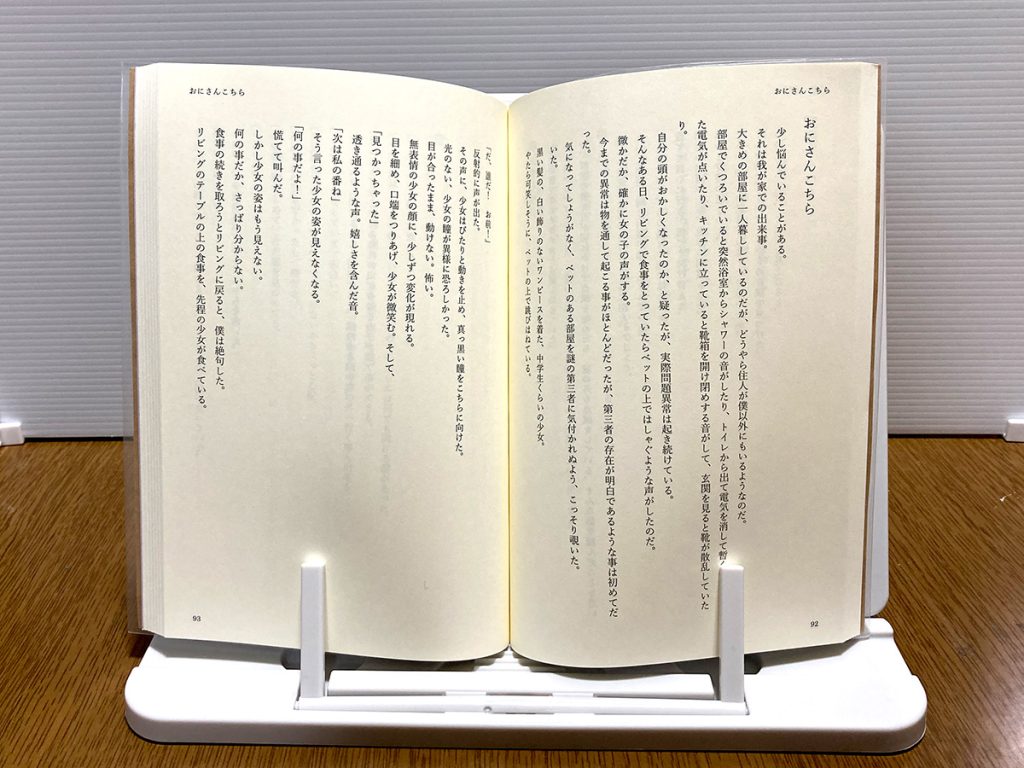 おにさんこちら
おにさんこちら
少し悩んでいることがある。
それは我が家での出来事。
大きめの部屋に一人暮しているのだが、どうやら住人が僕以外にもいるようなのだ。
部屋でくつろいでいると突然浴室からシャワーの音がしたり、トイレから出て電気を消して暫
た電気が点いたり、キッチンに立っていると靴箱を開け閉めする音がして、玄関を見ると靴が散乱していた
り。
自分の頭がおかしくなったのか、と疑ったが、実際問題異常は起き続けている。
そんなある日、リビングで食事をとっていたらベットの上ではしゃぐような声がしたのだ。
微かだか、確かに女の子の声がする。
今までの異常は物を通して起こる事がほとんどだったが、第三者の存在が明白であるような事は初めてだ
った。
気になってしょうがなく、ベットのある部屋を謎の第三者に気付かれぬよう、こっそり覗いた。
いた。
黒い髪の、白い飾りのないワンピースを着た、中学生くらいの少女。
やたら可笑しそうに、ベットの上で跳びはねている。
92
おにさんこちら
「だ、誰だ！　お前！」
反射的に声が出た。
その声に、少女はぴたりと動きを止め、真っ黒い瞳をこちらに向けた。
光のない、少女の瞳が異様に恐ろしかった。
目が合ったまま、動けない。怖い。
無表情の少女の顔に、少しずつ変化が現れる。
目を細め、口端をつりあげ、少女が微笑む。そして、
「見つかっちゃった」
透き通るような声。嬉しさを含んだ音。
「次は私の番ね」
そう言った少女の姿が見えなくなる。
「何の事だよ！」
慌てて叫んだ。
しかし少女の姿はもう見えない。
何の事だか、さっぱり分からない。
食事の続きを取ろうとリビングに戻ると、僕は絶句した。
リビングのテーブルの上の食事を、先程の少女が食べている。
93